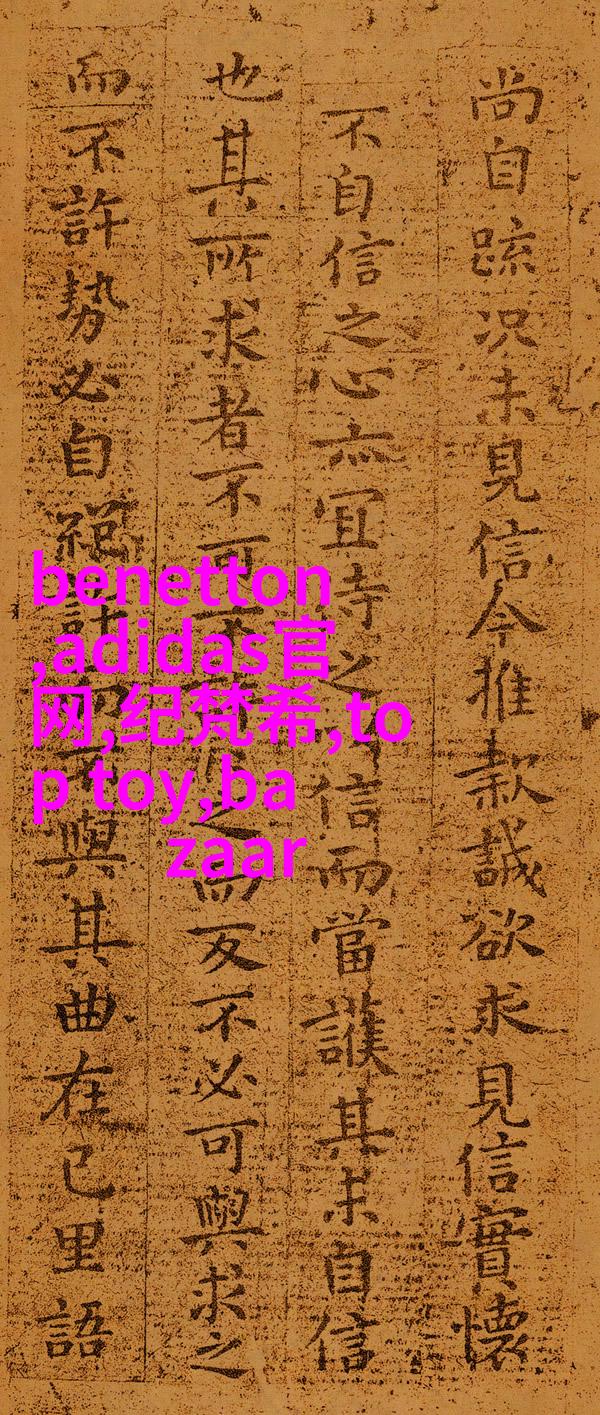 尚自疏况未見信今推款誠欲求見信實懷
不自信之心亦宜待之信而當護其未自信
也其所求者不可不之而反不必可與求之
而不許勢必自絕許不與其曲在己里語
benetton
,adidas官
网,纪梵希,to
p toy,ba
zaar